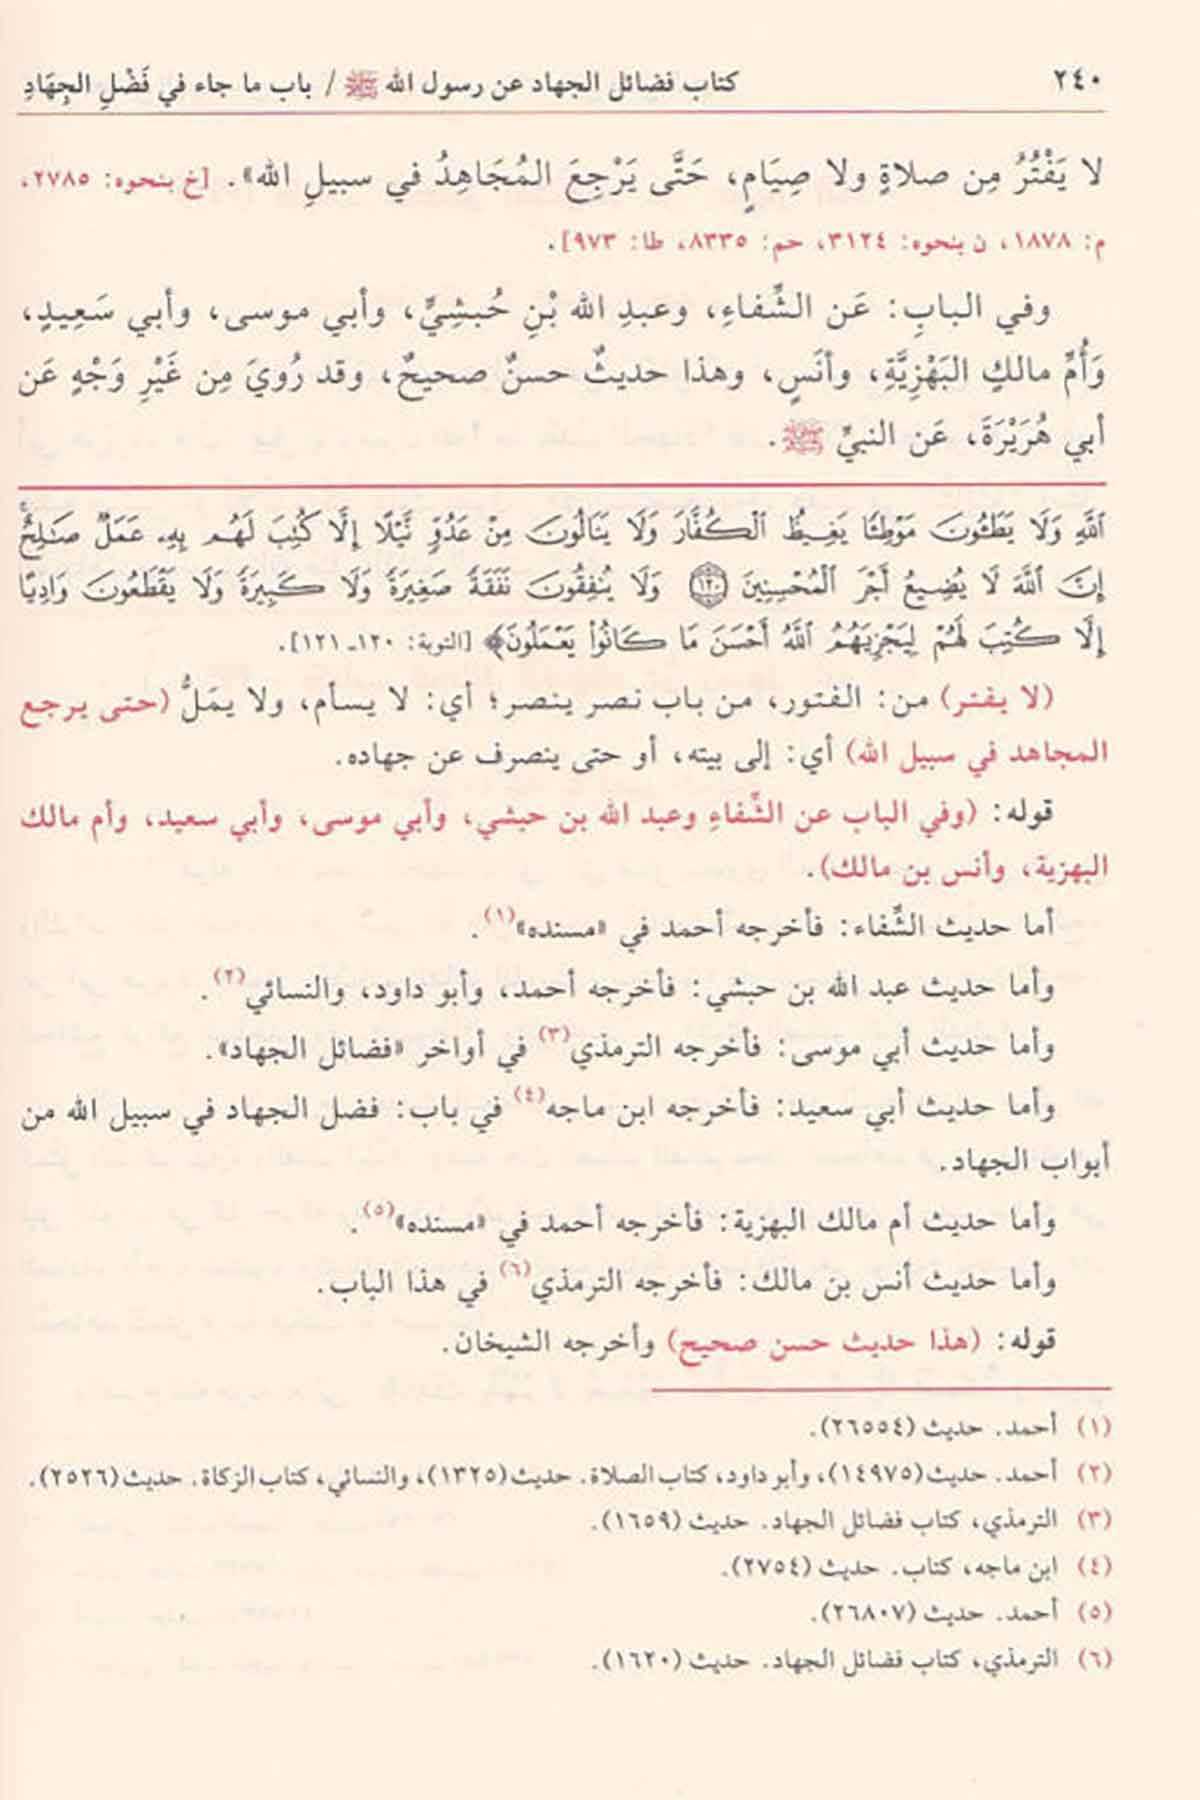 ٢٤٠ كتاب فضائل الجهاد عن رسول الله ﷺ / باب ما جاء في فَضْلِ الجِهَادِ
لا يَفْتُرُ مِن صلاةٍ ولا صِيَامٍ، حَتَّى يَرْجِعَ المُجَاهِدُ في سبيلِ الله». [خ بنحوه: ٢٧٨٥،
م: ١٨٧٨، ن بنحوه: ٣١٢٤، حم: ٨٣٣٥، طا: ٩٧٣].
وفي البابِ: عَن الشِّفاءِ، وعبدِ الله بْنِ حُبشِيٍّ، وأبي موسى، وأبي سَعِيدٍ،
وَأُمِّ مالكٍ البَهْزِيَّةِ، وأنَسٍ، وهذا حديثٌ حسنٌ صحيحٌ، وقد رُويَ مِن غَيْرِ وَجْهٍ عَن
أبي هُرَيْرَةَ، عَن النبيِّ ﷺ.
ٱللَّهِ وَلَا يَطَـُٔونَ مَوْطِئًا يَغِيظُ ٱلْكُفَّارَ وَلَا يَنَالُونَ مِنْ عَدُوٍّ نَّيْلًا إِلَّا كُتِبَ لَهُم بِهِۦ عَمَلٌ صَـٰلِحٌۚ
إِنَّ ٱللَّهَ لَا يُضِيعُ أَجْرَ ٱلْمُحْسِنِينَ ۝١٢٠ وَلَا يُنفِقُونَ نَفَقَةً صَغِيرَةً وَلَا كَبِيرَةً وَلَا يَقْطَعُونَ وَادِيًا
إِلَّا كُتِبَ لَهُمْ لِيَجْزِيَهُمُ ٱللَّهُ أَحْسَنَ مَا كَانُوا۟ يَعْمَلُونَ﴾ [التوبة: ١٢٠ـ ١٢١].
(لا يفتر) من: الفتور، من باب نصر ينصر؛ أي: لا يسأم، ولا يمَلُّ (حتى يرجع
المجاهد في سبيل الله) أي: إلى بيته، أو حتى ينصرف عن جهاده.
قوله: (وفي الباب عن الشِّفاءِ وعبد الله بن حبشي، وأبي موسى، وأبي سعيد، وأم مالك
البهزية، وأنس بن مالك).
أما حديث الشِّفاء: فأخرجه أحمد في «مسنده»(١).
وأما حديث عبد الله بن حبشي: فأخرجه أحمد، وأبو داود، والنسائي(٢).
وأما حديث أبي موسى: فأخرجه الترمذي(٣) في أواخر «فضائل الجهاد».
وأما حديث أبي سعيد: فأخرجه ابن ماجه(٤) في باب: فضل الجهاد في سبيل الله من
أبواب الجهاد.
وأما حديث أم مالك البهزية: فأخرجه أحمد في «مسنده»(٥).
وأما حديث أنس بن مالك: فأخرجه الترمذي(٦) في هذا الباب.
قوله: (هذا حديث حسن صحيح) وأخرجه الشيخان.
(١) أحمد. حديث (٢٦٥٥٤).
(٢) أحمد. حديث (١٤٩٧٥)، وأبو داود، كتاب الصلاة. حديث (١٣٢٥)، والنسائي، كتاب الزكاة. حديث (٢٥٢٦).
(٣) الترمذي، كتاب فضائل الجهاد. حديث (١٦٥٩).
(٤) ابن ماجه، كتاب. حديث (٢٧٥٤).
(٥) أحمد. حديث (٢٦٨٠٧).
(٦) الترمذي، كتاب فضائل الجهاد. حديث (١٦٢٠).